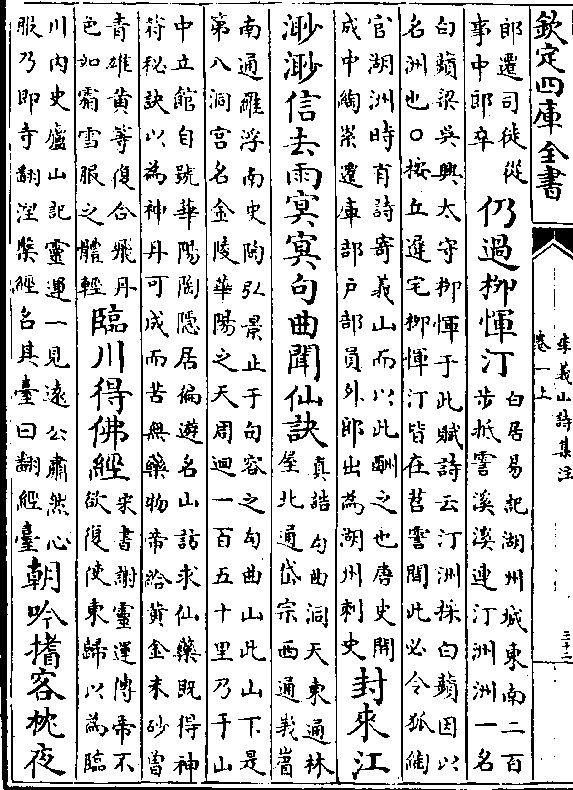 欽定四庫全書
李義山詩集注
卷一上
三十二
郎遷司徒從
事中郎卒
仍過柳惲汀
白居易記湖州城東南二百
步抵霅溪溪連汀洲洲一名
白蘋梁吳興太守柳惲于此賦詩云汀洲採白蘋因以
名洲也〇按丘遲宅柳惲汀皆在苕霅間此必令狐綯
官湖洲時有詩寄義山而以此酬之也唐史開
成中綯累遷庫部戶部員外郎出為湖州刺史
封來江
渺渺信去雨冥冥句曲聞仙訣
真誥句曲洞天東通林
屋北通岱宗西通峩嵋
南通羅浮南史陶弘景止于句容之句曲山此山下是
第八洞宫名金陵華陽之天周迴一百五十里乃于山
中立館自號華陽陶隱居徧遊名山訪求仙藥既得神
符秘訣以為神丹可成而苦無藥物帝給黃金朱砂曾
青雄黃等復合飛丹
色如霜雪服之體輕
臨川得佛經
宋書謝靈運傳帝不
欲復使東歸以為臨
川内史廬山記靈運一見遠公肅然心
服乃即寺翻湼槃經名其臺曰翻經臺
朝吟搘客枕夜